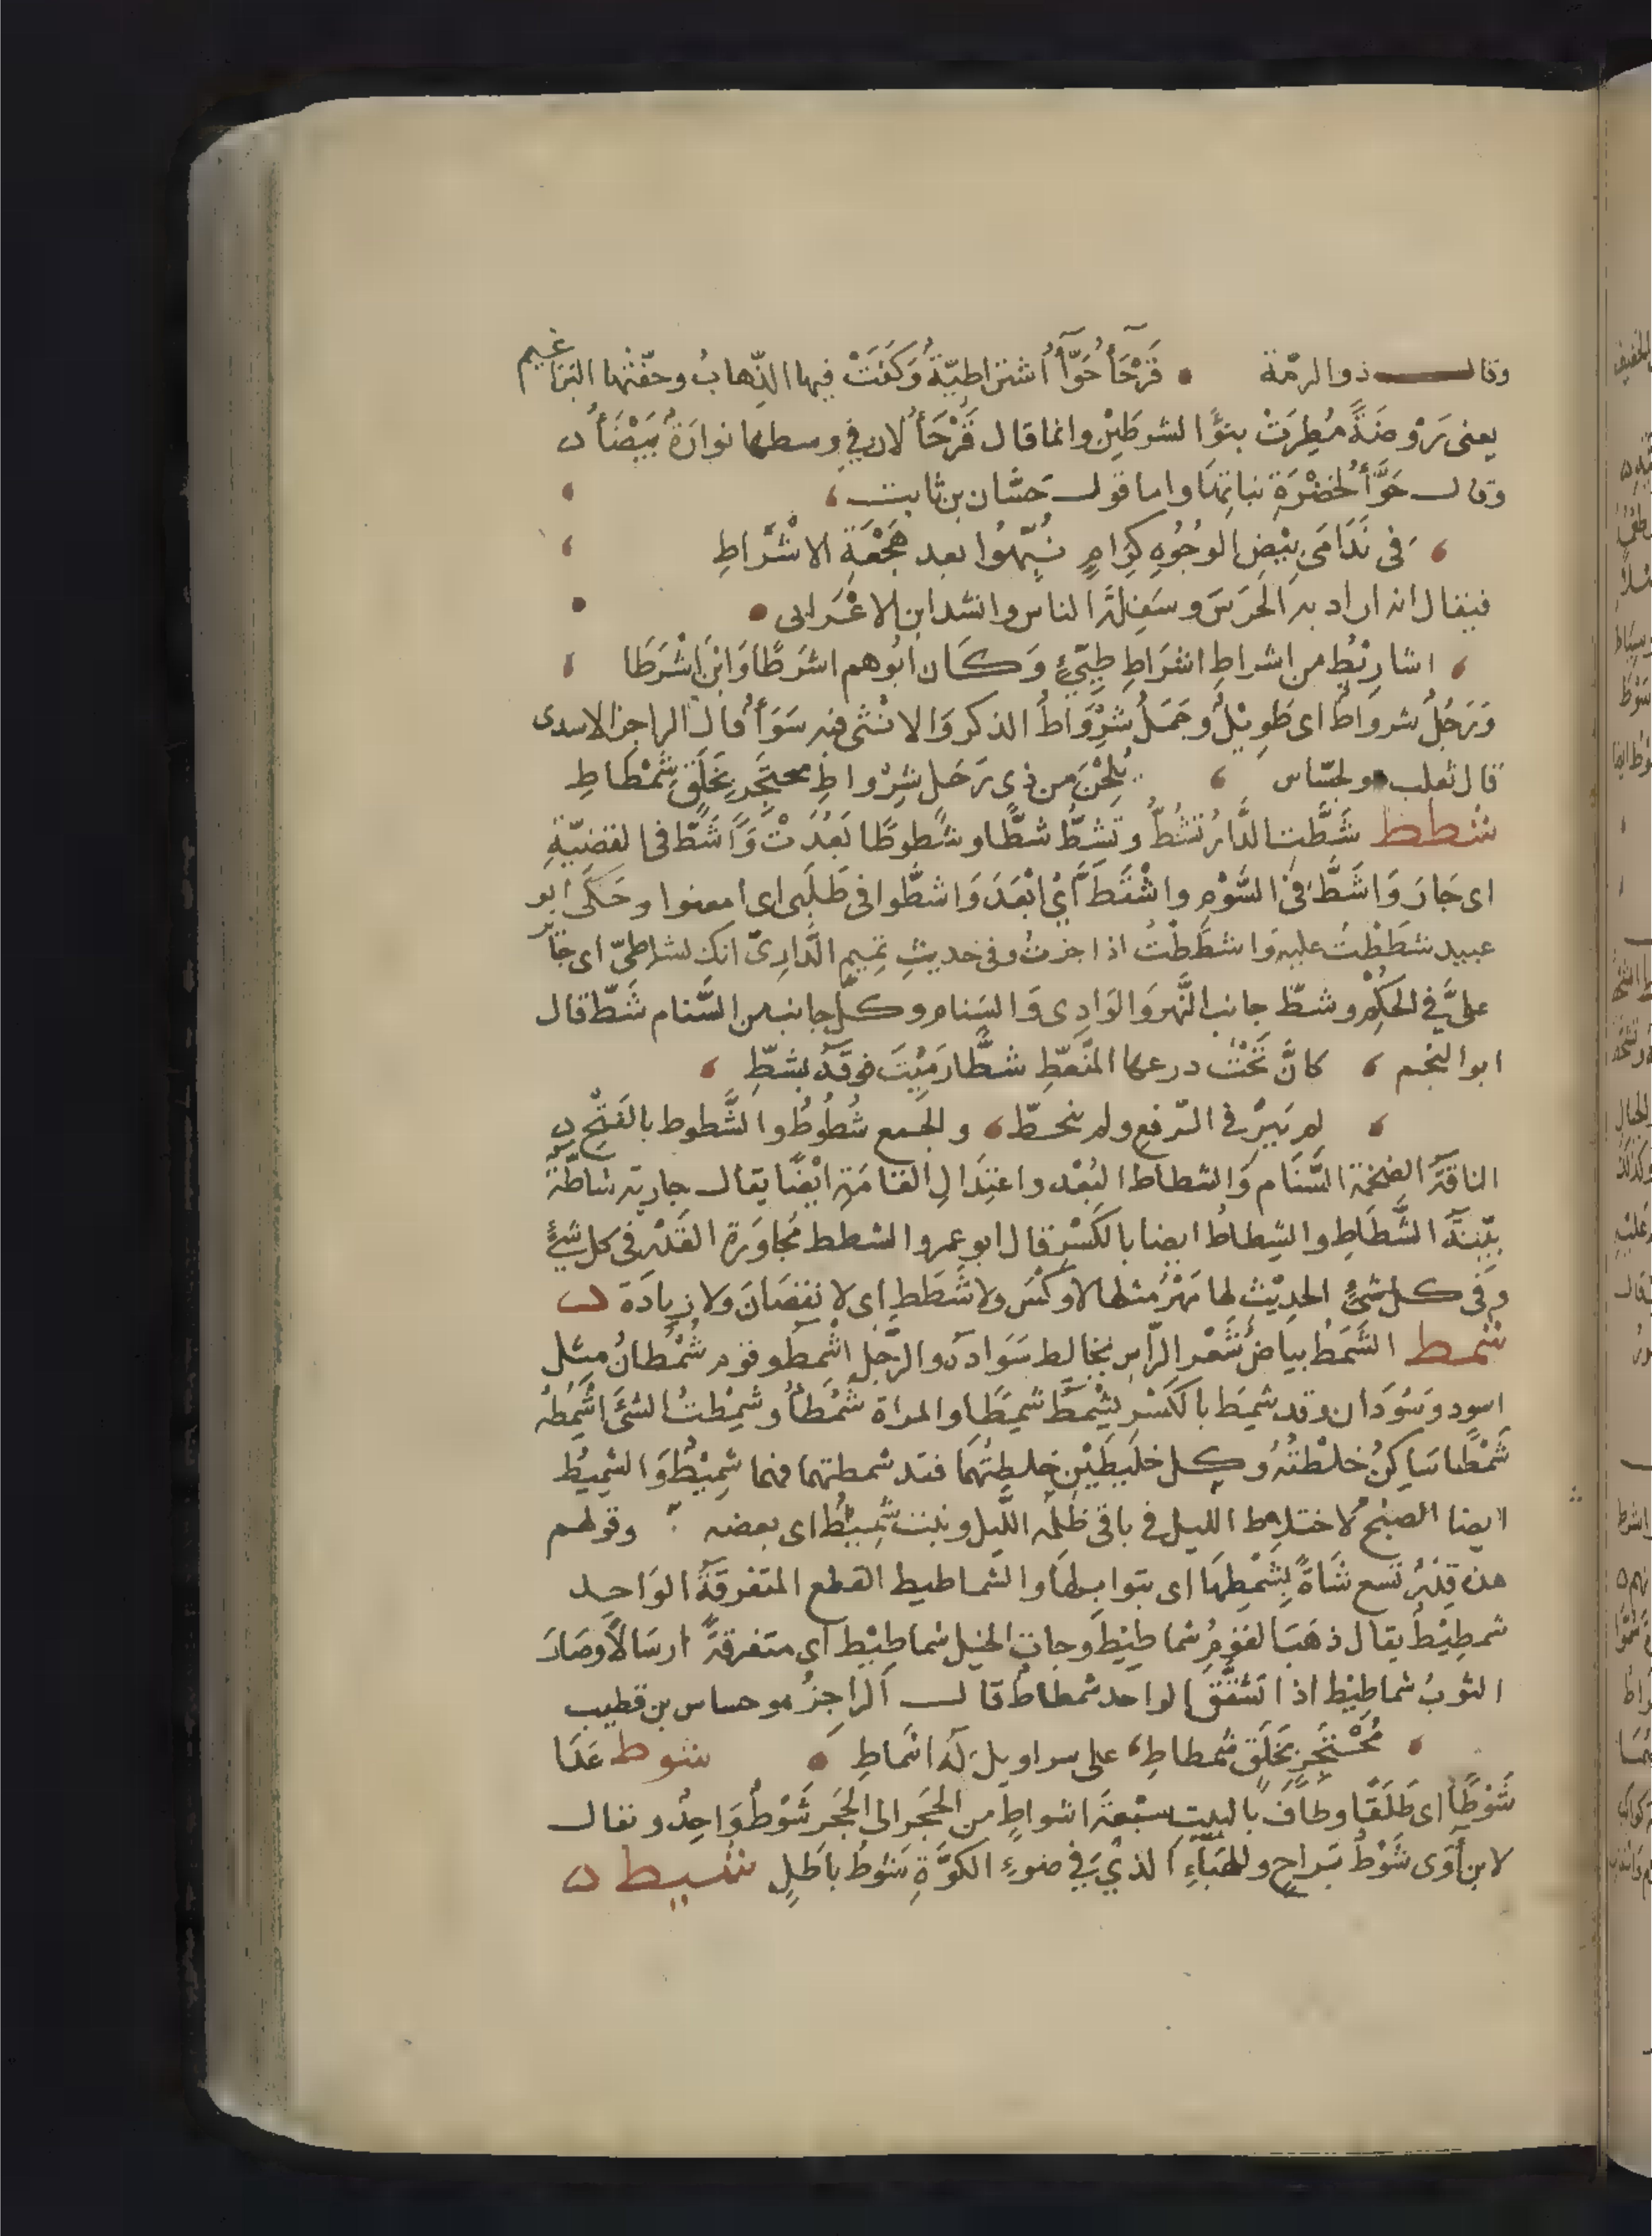 وقال ذو الرمّة قَرْحَأُ حَوَّأُ اشراطِيّةُ وَكَفَتْ فيها الذِّهابُ وحفّتها البراعيم
يعنى رَوْضَةً مُطِرَتْ بنوْءِ الشرطَيْنِ وانما قال قَرْحَأُ لان في وسطها نوارَةً بَيْضَأُ
وقال حَوَّأُ لخضْرَةِ نباتِهَا واما قول حَسَّان بن ثابت
فى نَدَامَى بِيْضِ الوجُوُهِ كِرَامٍ نُبِّهُوا بعد هَجْعَةِ الاشْرَاطِ
فيقال انه اراد به الحَرَسَ وسَفِلَةَ الناس وانشد ابن الاعْرَابى
اشارِيْطِ من اشراطِ اشرَاطِ طيّئٍ وَكَان ابُوهم اشرَطًا وَابْنَ اشْرَطَا
وَرَجُلٌ شرواطٌ اى طَوِيْلٌ وجَمَلٌ شِرْوَاطٌ الذكر وَالانْثى فيه سَوَأُ قال الراجز الاسدى
قال ثعلب هو لجسّاس يُلِحْنَ من ذى زَجَلٍ شِرْواطِ محتَجِزٍ بخَلَقٍ شِمْطَاطِ
شطط شَطَّتِ الدَّارُ تَشُطُّ وتَشِطُّ شطًّا وشُطوطًا بَعُدَتْ وَاَشَطّ فى القضِيّةِ
اى جَارَ وَاَشَطَّ فى السَّوْمِ واشْتَطَّ اَىْ ابْعَدَ وَاشطُّوا فى طَلَبى اى امعنوا وحَكَى ابو
عبيد شطَطْتُ عليه وَاشطَطْتُ اذا جزتُ وفى حديثِ تميمٍ الدَّارِىّ انكَ لشاطىّ اى جَآر
علىَّ فِي الحكِمْ وشطّ جانب النَّهر وَالوَادِى وَالسَنام وكلّ جانب من السَّنام شَطّ قال
ابو النجم كانَّ تَحْتَ درعها المنْعَطِّ شطًّا رَمَيْتَ فوقَهُ بشطِّ
لم يَنْزُ في الرّفع ولم ينحطّ والجمع شُطُوطٌ والشَّطوط بالفَتْح
الناقَة الضخمة السَّنَام وَالشطاط البُعْد واعتِدَالِ القَامَة ايْضًا يقال جارية شاطّةٌ
بيّنَة الشَّطَاطِ والشِطاطُ ايضا بالكَسْرِ قال ابو عمرو الشطط مُجاوَزة القَدْرِ فى كل شئٍ
وفى كل شئٍ الحدِيْث لها مَهْرُ مثلها لا وكْسَ ولا شَطَط اى لا نقصَانَ ولا زيادَة
شمط الشَّمَطُ بياضُ شَعْر الرّاسِ يخالط سَوَاده والرّجُل اشْمَط وقوم شُمْطانٌ مثل
اسود وسُوْدَان وقد شَمِطَ بالكَسْرِ يشْمَط شَمَطًا والمراة شَمْطأُ وشَمَطْتُ الشئَ اشْمِطُهُ
شَمْطًا ساكنٌ خلَطْتُهُ وكل خليطَيْنِ خلطتُهمَا فقد شمطتهما فهما شَمِيْطٌ وَالشَّمِيْطُ
ايضا الصبْح لاختلاط الليل فى باقى ظلمه اللَّيل ونبت شَمِيْطٌ اى بعضه وقولهم
هذه قِدْرٌ تسع شَاةً بِشَمْطِهَا اى بتوابلهَا والشماطيط القطع المتفرقَةُ الوَاحد
شمطِيْطٌ يقال ذهَبَ القومُ شماطِيْطَ وجات الخيل شماطِيْط اى متفرقةً ارسَالاً وصَارَ
الثوبُ شماطِيْط اذا تشقَّق الواحد شمطاط قال الرَاجزُ هو جساس بن قطيب
مُحْتَجِزٍ بخَلَقٍ شمطاطِ على سراويلَ لَهُ اسْماطِ شوط عَدَا
شَوْطًا اى طَلَقًا وطافَ بالبيت سبْعَة اشواطٍ من الحَجَر الى الحَجَر شَوْطٌ وَاحِدٌ ويقال
لابن اَوَى شَوْطُ بَراحٍ وللهَبَاءِ الذِيْ فِي ضوءِ الكوَّةِ شَوْطُ باطَلِ شيط